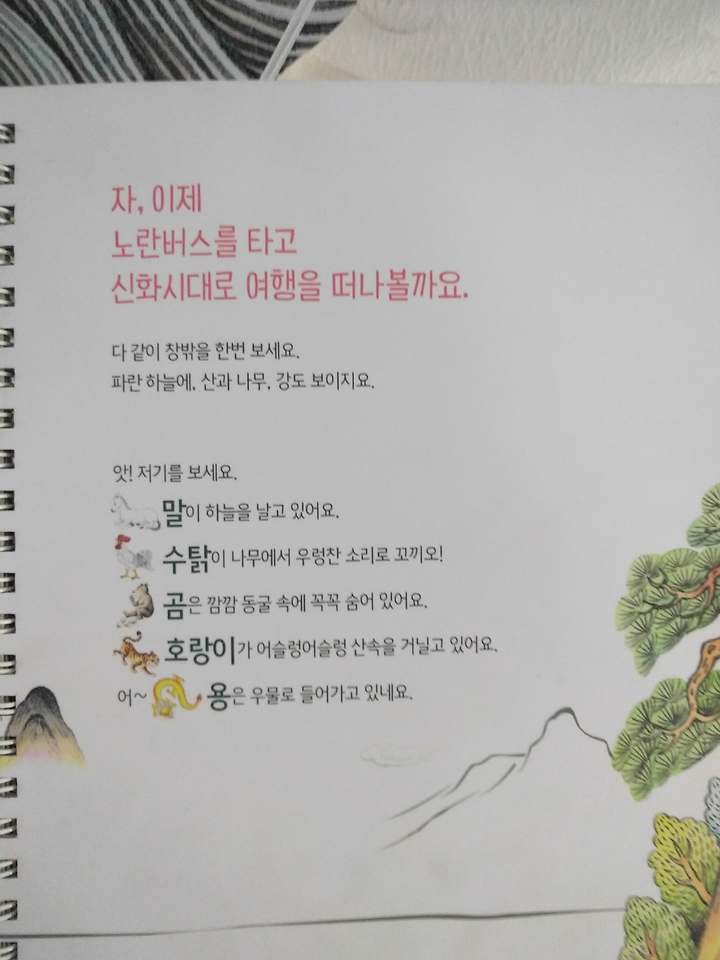 자, 이제
노란버스를 타고
신화시대로 여행을 떠나볼까요.
다 같이 창밖을 한번 보세요.
파란 하늘에, 산과 나무, 강도 보이지요.
앗! 저기를 보세요.
말이 하늘을 날고 있어요.
수탉이 나무에서 우렁찬 소리로 꼬끼오!
곰은 깜깜 동굴 속에 꼭꼭 숨어 있어요.
호랑이가 어슬렁어슬렁 산속을 거닐고 있어요.
어~ 용은 우물로 들어가고 있네요.